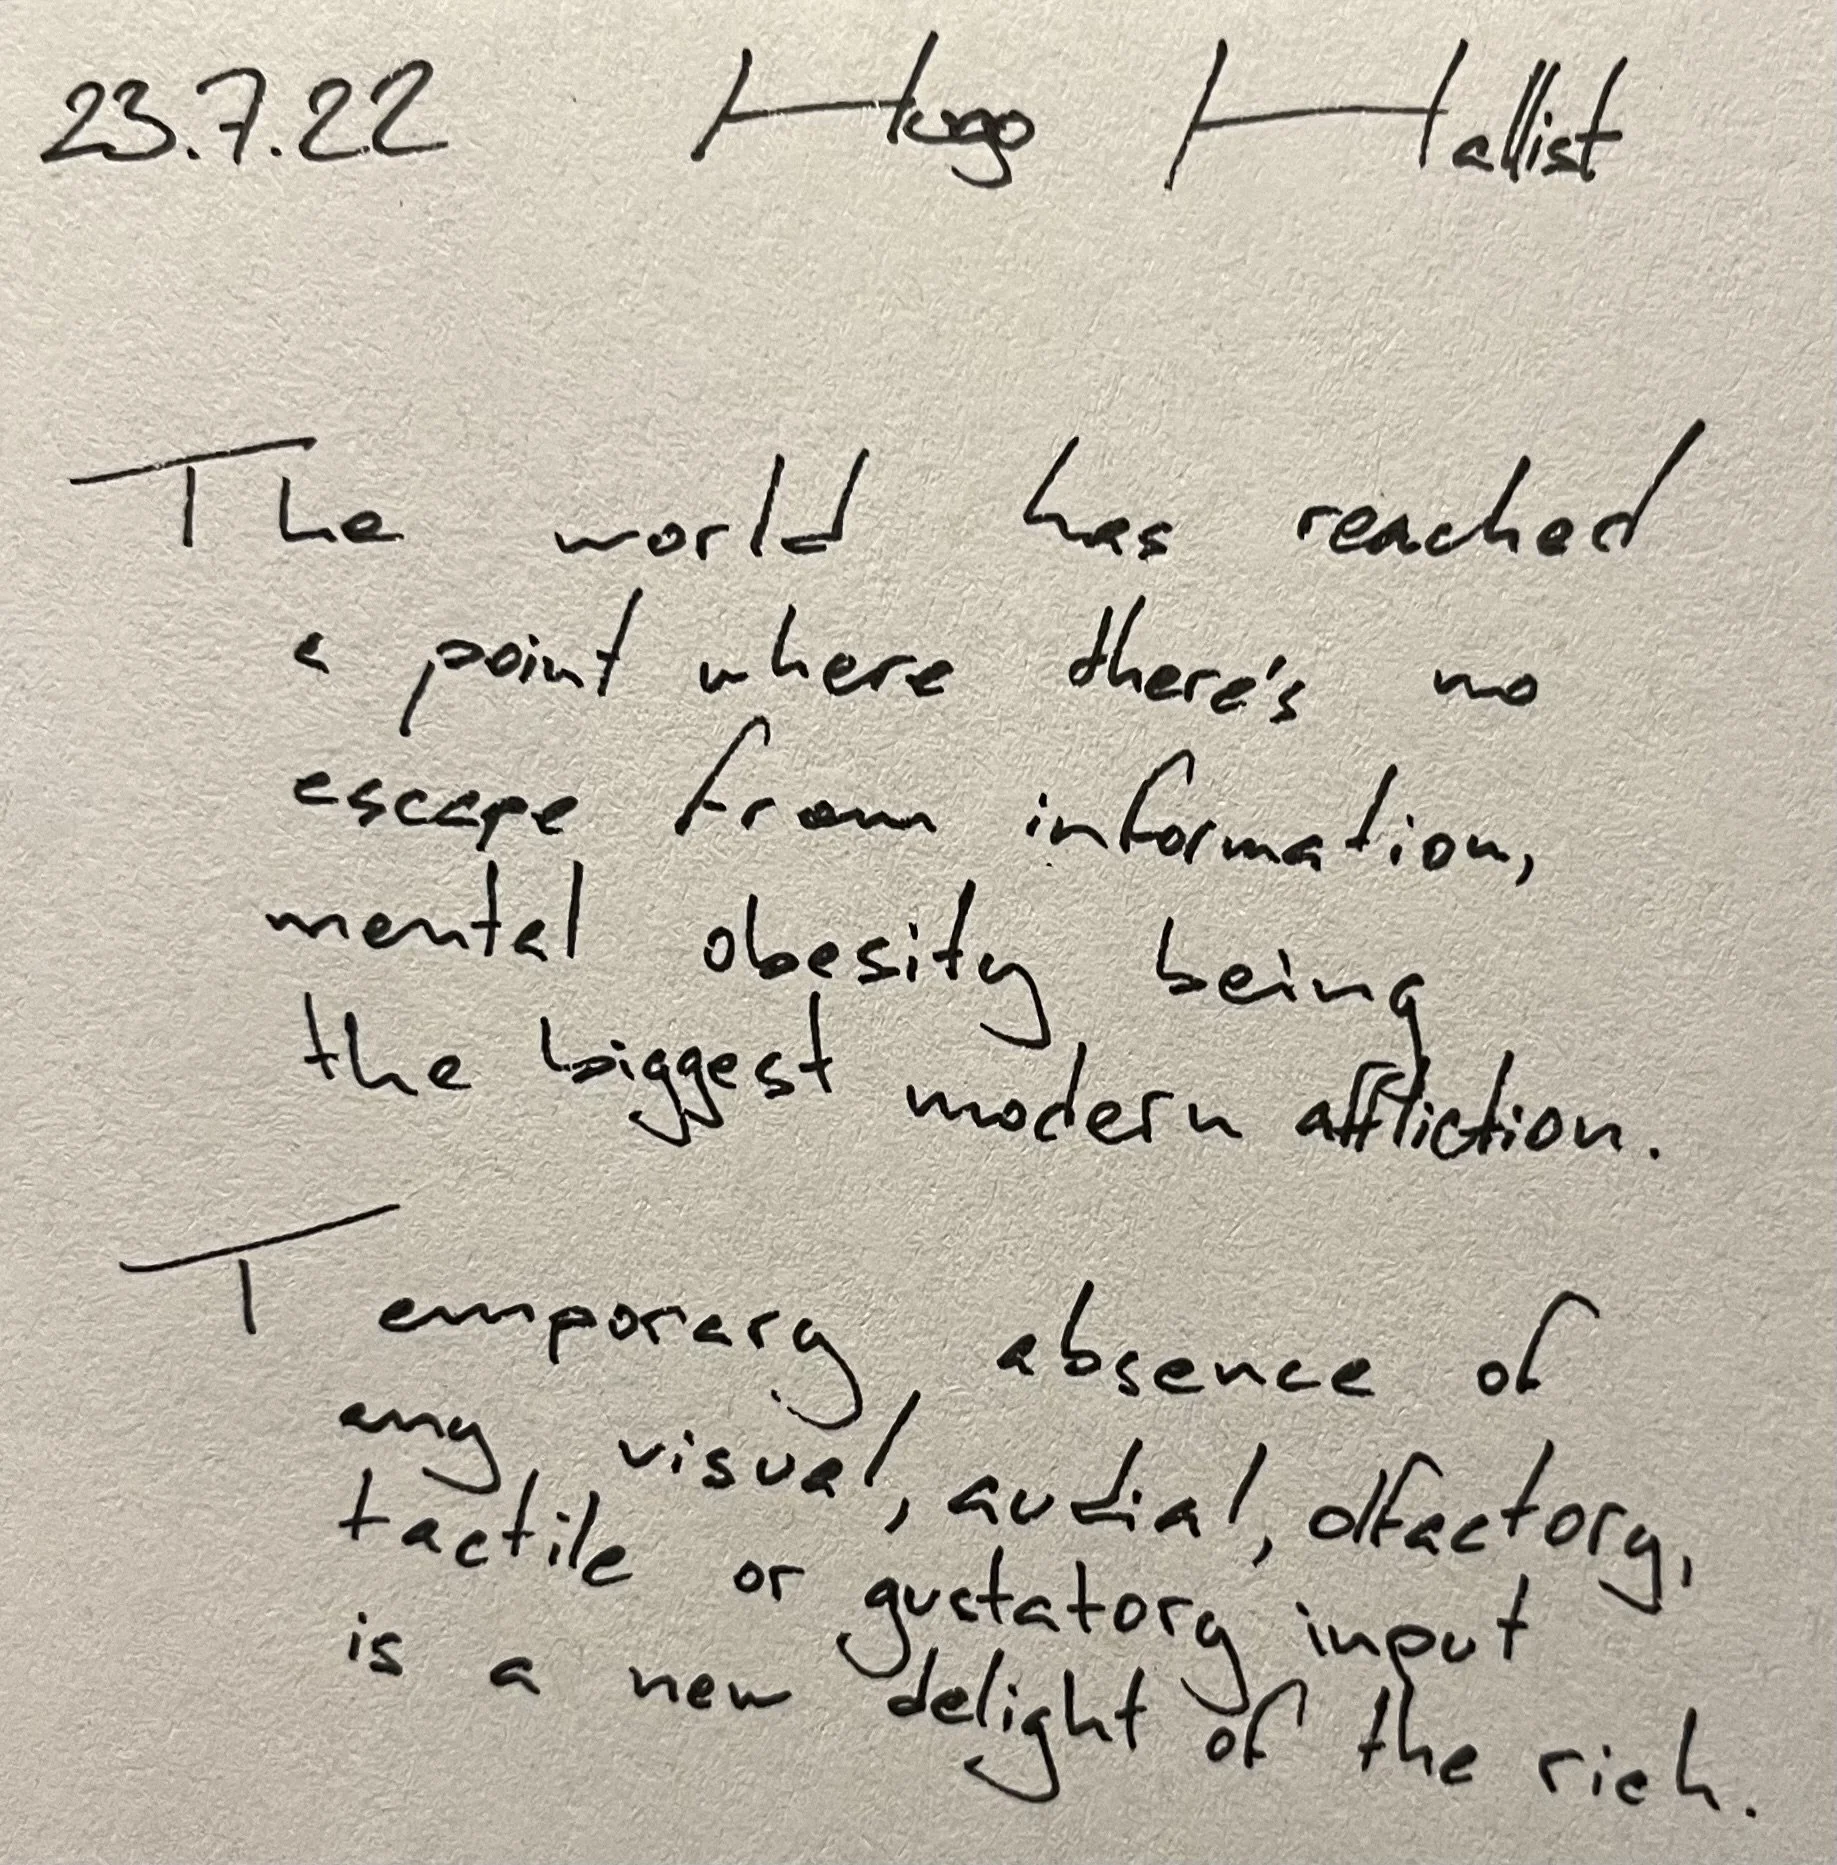 23.7.22 Hugo Hallist
The world has reached
a point where there's no
escape from information,
mental obesity being
the biggest modern affliction.
Temporary absence of
any visual, audial, olfactory,
tactile or gustatory input
is a new delight of the rich.